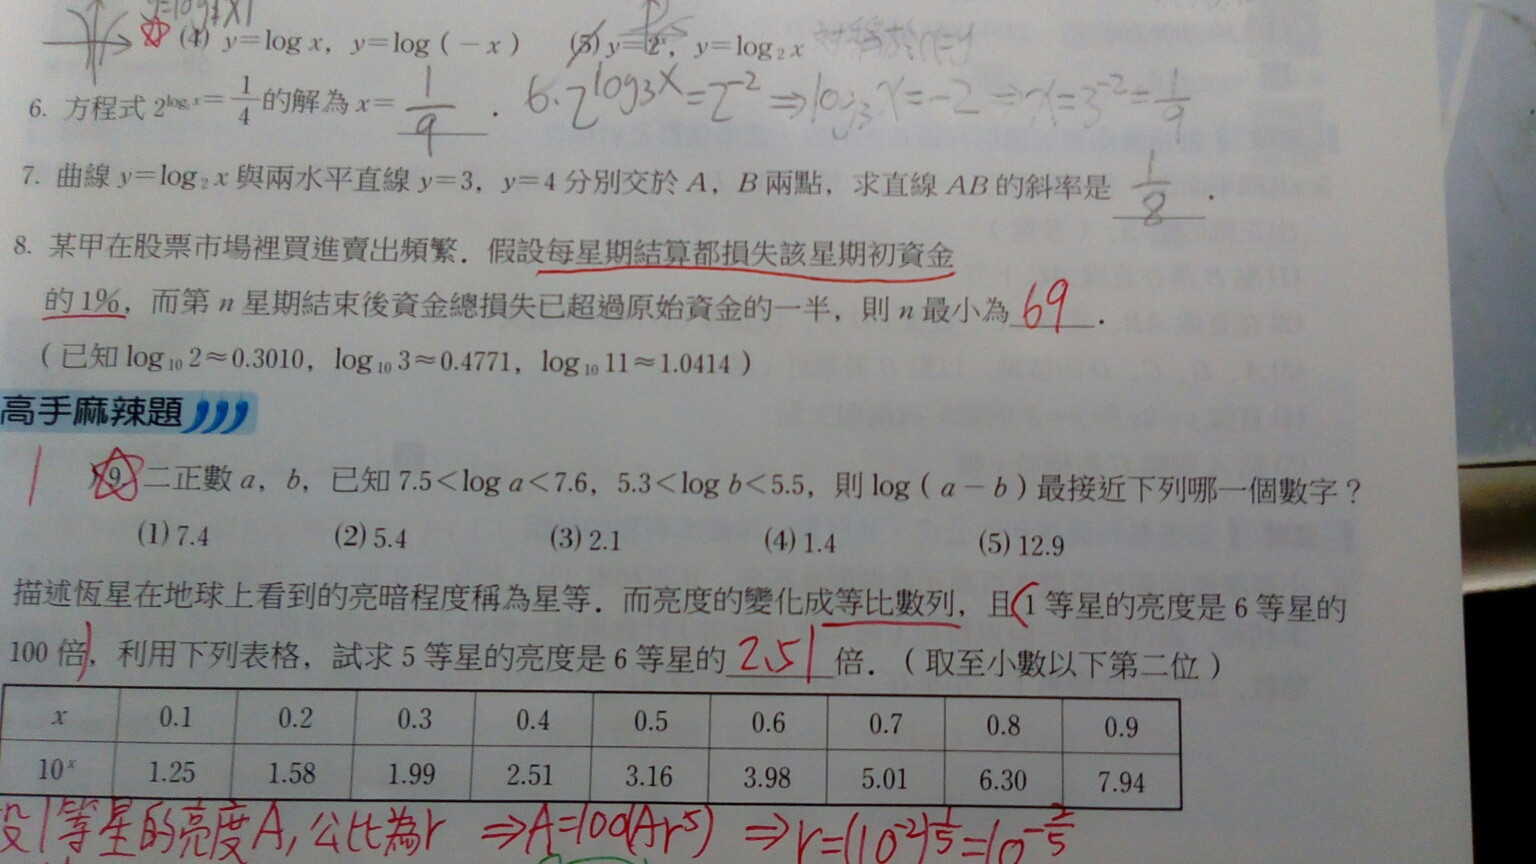 (4) y=log x，y=log（－x）  (5) y=2ˣ，y=log₂x 對稱於x=y
6. 方程式 2^{log₃x}=1/4 的解為 x= 1/9 ． 6. 2^{log₃x}=2⁻² ⇒log₃x=-2 ⇒x=3⁻²=1/9
7. 曲線 y=log₂x 與兩水平直線 y=3，y=4 分別交於 A，B 兩點，求直線 AB 的斜率是 1/8 ．
8. 某甲在股票市場裡買進賣出頻繁．假設每星期結算都損失該星期初資金
的 1%，而第 n 星期結束後資金總損失已超過原始資金的一半，則 n 最小為 69 ．
（已知 log₁₀2≈0.3010，log₁₀3≈0.4771，log₁₀11≈1.0414）
高手麻辣題
1 9. 二正數 a，b，已知 7.5＜log a＜7.6，5.3＜log b＜5.5，則 log（a－b）最接近下列哪一個數字？
(1) 7.4 (2) 5.4 (3) 2.1 (4) 1.4 (5) 12.9
描述恆星在地球上看到的亮暗程度稱為星等．而亮度的變化成等比數列，且(1 等星的亮度是 6 等星的
100 倍)，利用下列表格，試求 5 等星的亮度是 6 等星的 2.51 倍．（取至小數以下第二位）
x 0.1 0.2 0.3 0.4 0.5 0.6 0.7 0.8 0.9
10ˣ 1.25 1.58 1.99 2.51 3.16 3.98 5.01 6.30 7.94
設1等星的亮度A,公比為r ⇒A=100(Ar⁵) ⇒r=(10⁻²)^{1/5}=10^{-2/5}